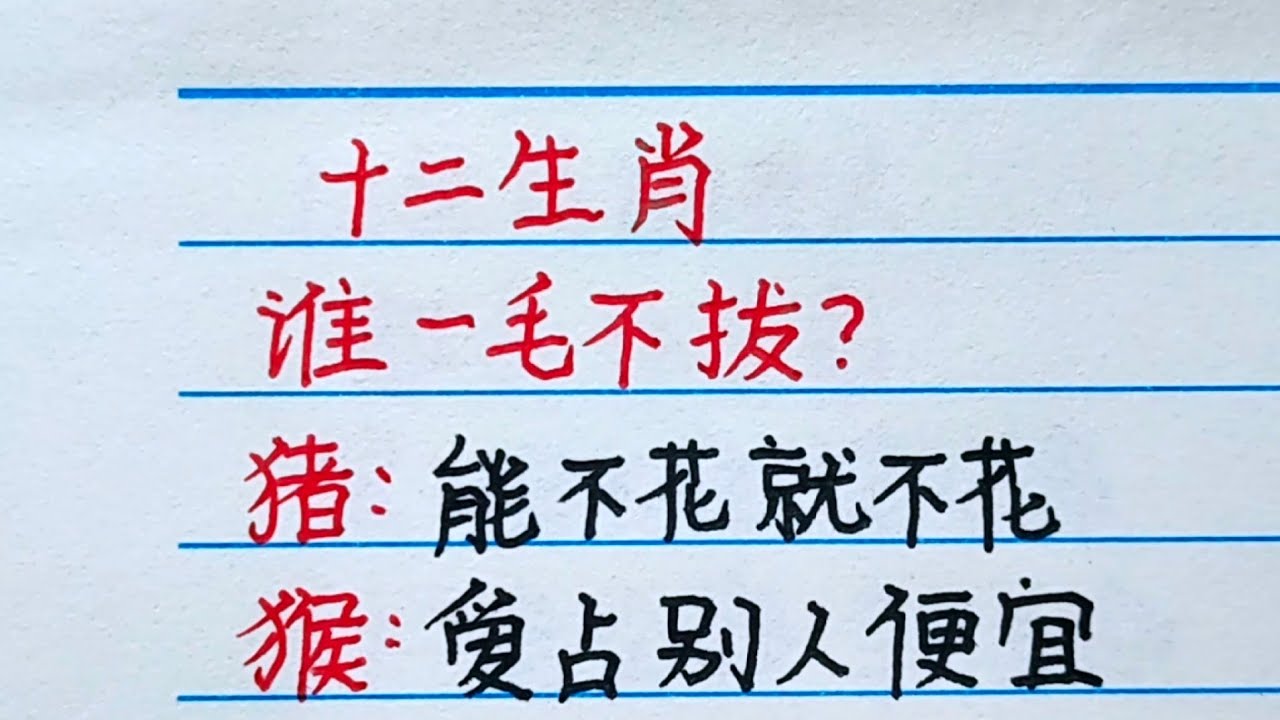 十二生肖
谁一毛不拔?
猪:能不花就不花
猴:爱占别人便宜